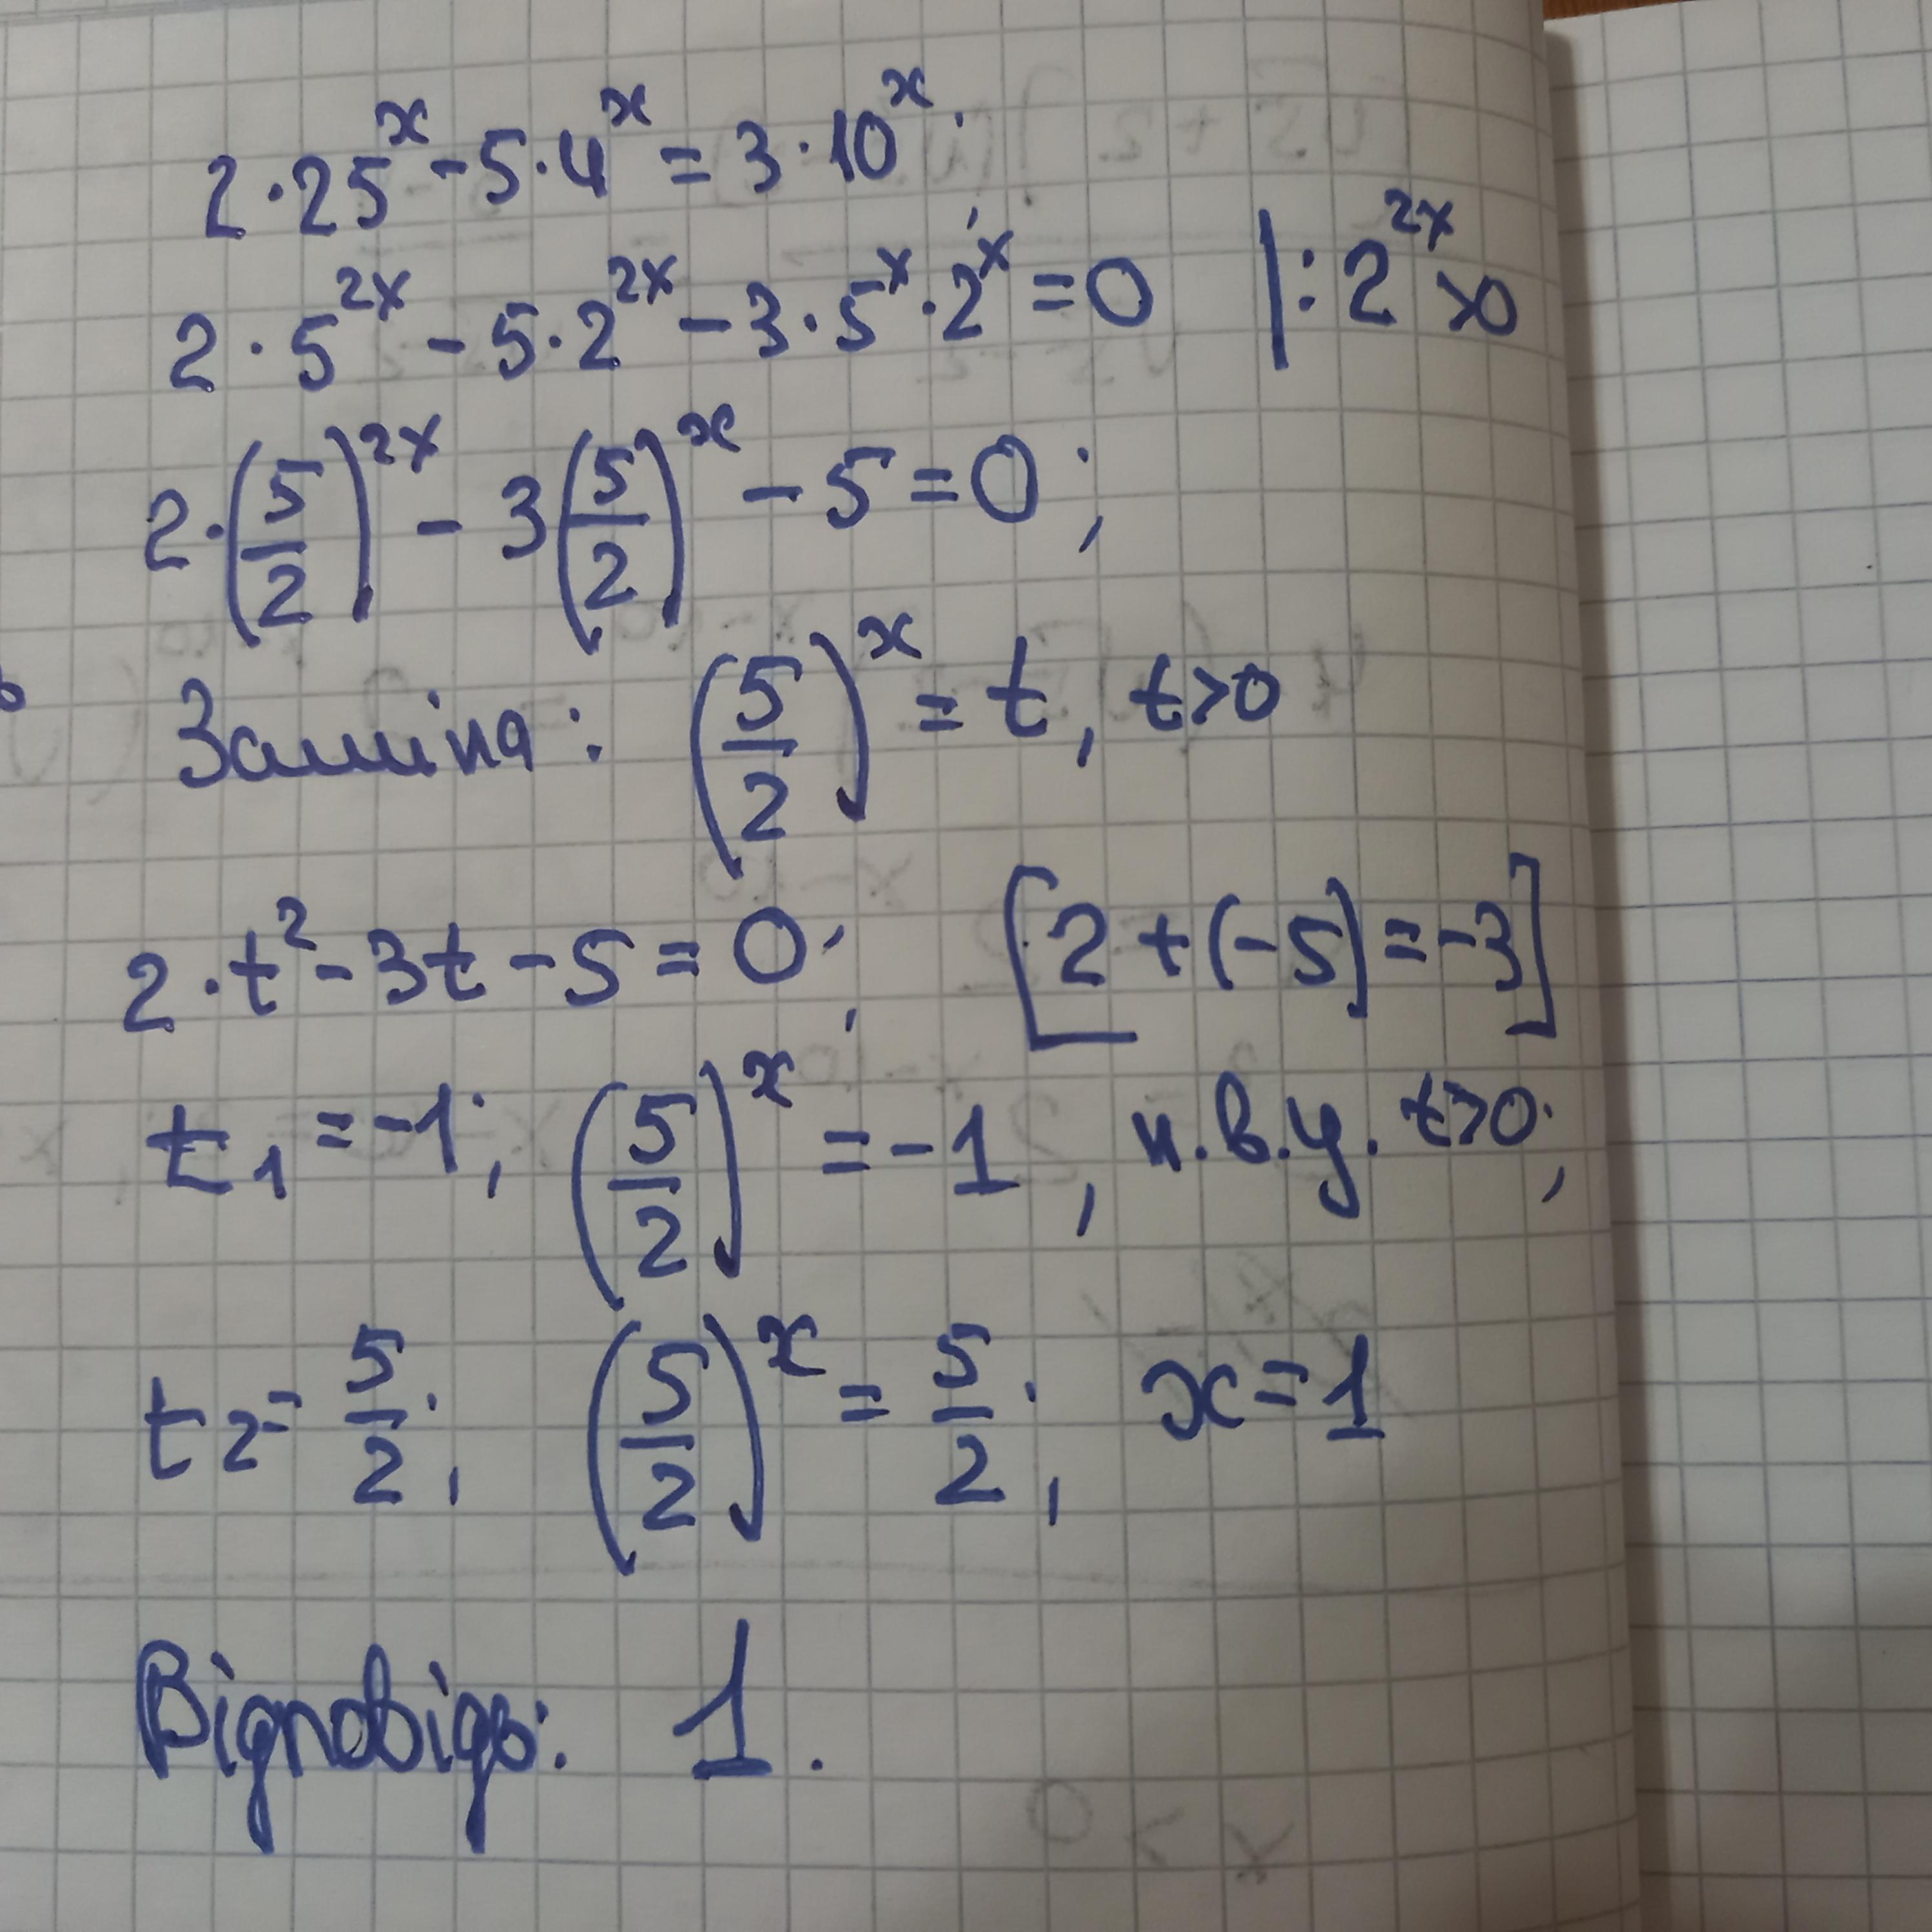 2·25^x - 5·4^x = 3·10^x;
2·5^{2x} - 5·2^{2x} - 3·5^x·2^x = 0 |:2^{2x}>0
2·(5/2)^{2x} - 3(5/2)^x - 5 = 0;
Заміна: (5/2)^x = t, t>0
2·t² - 3t - 5 = 0; [2+(-5)=-3]
t₁ = -1; (5/2)^x = -1, н.в.у. t>0;
t₂ = 5/2; (5/2)^x = 5/2; x=1
Відповідь: 1.